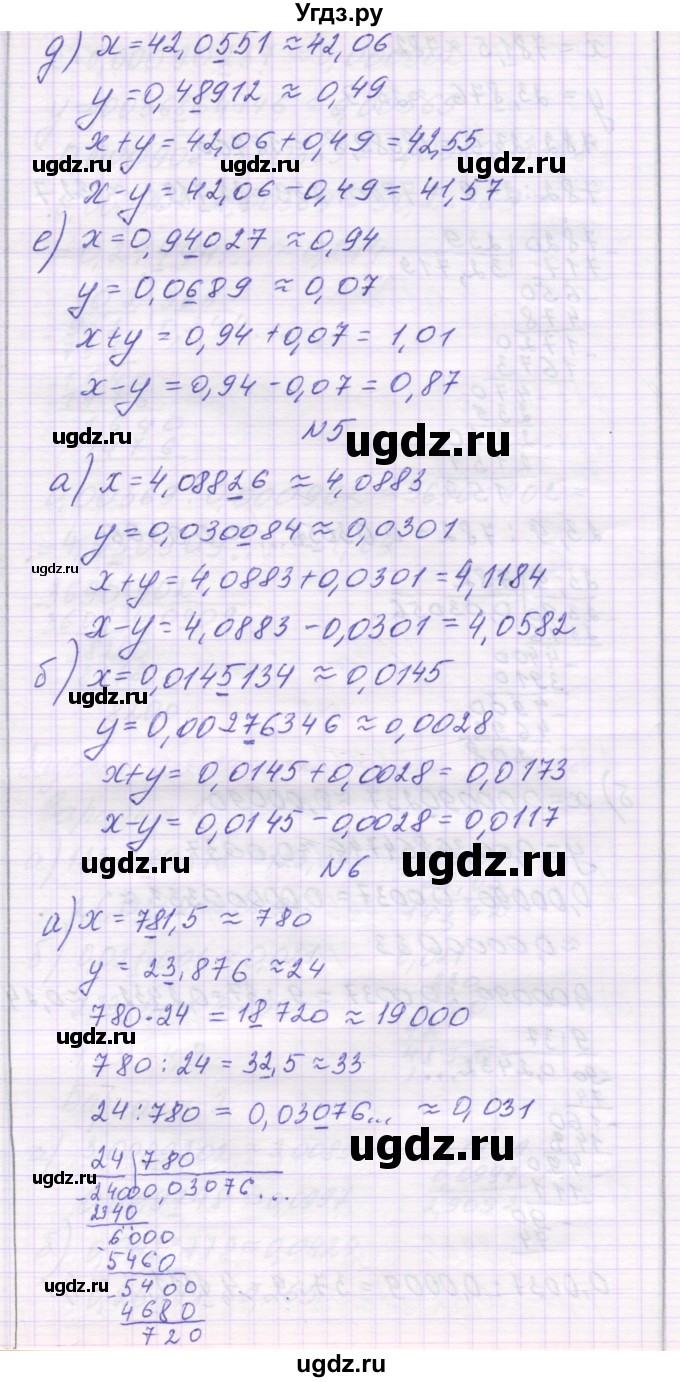 Угдз.ру
д) x=42,0551≈42,06
y=0,48912 ≈ 0,49
x+y=42,06+0,49=42,55
ugdz.ru ugdz.ru ugdz.ru
x-y=42,06-0,49=41,57
е) x=0,94027≈0,94
y=0,0689 ≈0,07
x+y=0,94+0,07=1,01
x-y=0,94-0,07=0,87
ugdz.ru N5 ugdz.ru
а) x=4,08826≈4,0883
y=0,030084≈0,0301
ugdz.ru
x+y=4,0883+0,0301=4,1184
x-y=4,0883-0,0301=4,0582
б) x=0,0145134≈0,0145
ugdz.ru ugdz.ru
y=0,00276346≈0,0028
x+y=0,0145+0,0028=0,0173
x-y=0,0145-0,0028=0,0117
ugdz.ru N6 ugdz.ru
а) x=781,5≈780
y=23,876≈24
780·24=18720≈19000
ugdz.ru
780:24=32,5≈33
24:780=0,03076...≈0,031
ugdz.ru
24 780
ugdz.ru
-2400 0,03076...
2340
-6000
5460
ugdz.ru
-5400
4680
720
ugdz.ru